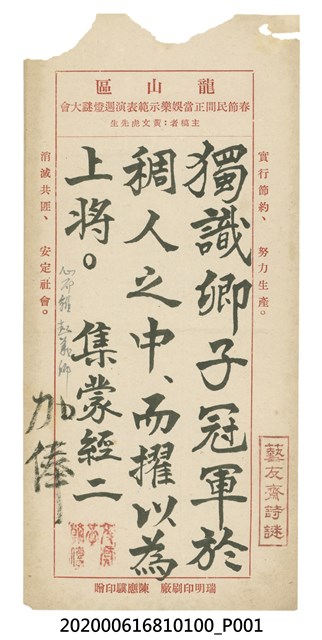 龍山區
春節民間正當娛樂示範表演迴燈謎大會
主稿者：黃文虎先生
實行節約、努力生產。
獨識卿子冠軍於
稠人之中、而擢以為
上將。集蒙經二
加俸
消滅共匪、安定社會。
藝友齋詩謎
瑞明印刷廠 陳應騏印贈
202000616810100_P001